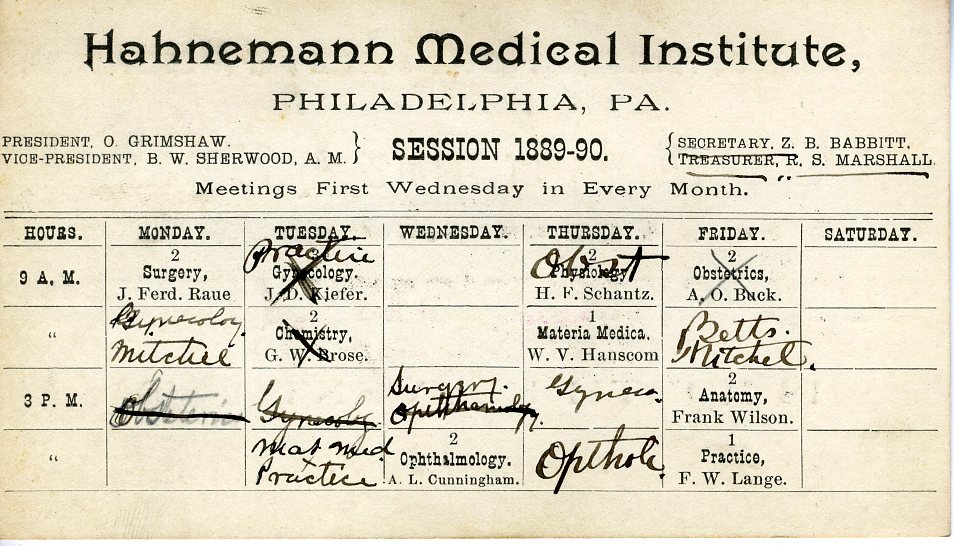 Hahnemann Medical Institute,
PHILADELPHIA, PA.
PRESIDENT, O. GRIMSHAW.
VICE-PRESIDENT, B. W. SHERWOOD, A. M.
SESSION 1889-90.
SECRETARY, Z. B. BABBITT.
TREASURER, R. S. MARSHALL.
Meetings First Wednesday in Every Month.
HOURS. MONDAY. TUESDAY. WEDNESDAY. THURSDAY. FRIDAY. SATURDAY.
9 A. M.
2
Surgery,
J. Ferd. Raue
Practice
Gynecology.
J. D. Kiefer.
Obst
2
Physiology
H. F. Schantz.
2
Obstetrics,
A. O. Buck.
"
Gynecology.
Mitchell
2
Chemistry,
G. W. Brose.
1
Materia Medica.
W. V. Hanscom
Betts.
Mitchel.
3 P. M.
Obstetric
Gynecolog.
Surgery.
Ophthamology.
Gyneco.
2
Anatomy,
Frank Wilson.
"
Mat med
Practice
2
Ophthalmology.
A. L. Cunningham.
Opthol.
1
Practice,
F. W. Lange.